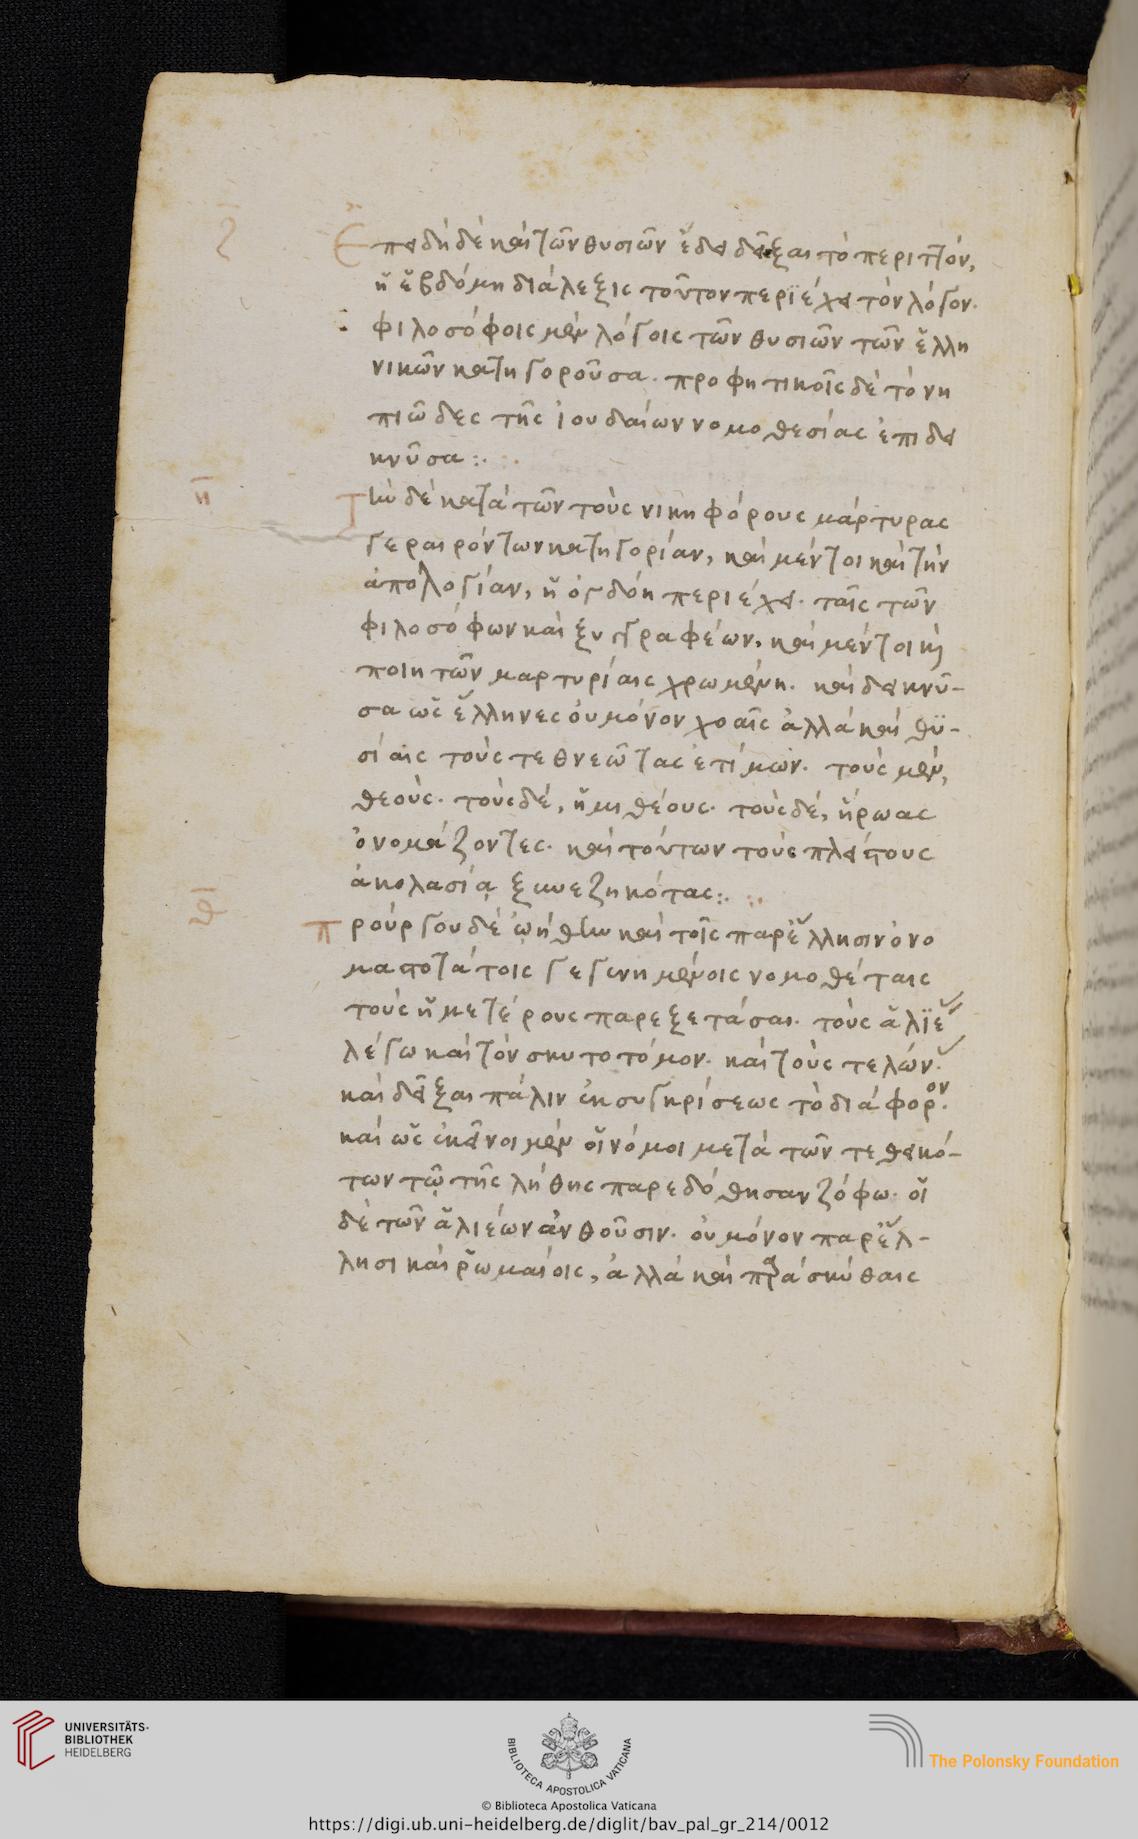 ζ
Ἐπειδὴ δὲ καὶ τῶν θυσιῶν ἔδει δεῖξαι τὸ περιττόν,
ἡ ἑβδόμη διάλεξις τοῦτον περιέχει τὸν λόγον·
φιλοσόφοις μὲν λόγοις τῶν θυσιῶν τῶν ἑλλη
νικῶν κατηγοροῦσα· προφητικοῖς δὲ τὸ νη
πιῶδες τῆς ἰουδαίων νομοθεσίας ἐπιδει
κνῦσα:·
η
Τὴν δὲ κατὰ τῶν τοὺς νικηφόρους μάρτυρας
γεραιρόντων κατηγορίαν, καὶ μέντοι καὶ τὴν
ἀπολογίαν, ἡ ὀγδόη περιέχει· ταῖς τῶν
φιλοσόφων καὶ ξυγγραφέων, καὶ μέντοι καὶ
ποιητῶν μαρτυρίαις χρωμένη· καὶ δεικνῦ-
σα ὡς ἕλληνες οὐ μόνον χοαῖς ἀλλὰ καὶ θυ-
σίαις τοὺς τεθνεῶτας ἐτίμων· τοὺς μὲν,
θεοὺς· τοὺς δὲ, ἡμιθέους· τοὺς δὲ, ἥρωας
ὀνομάζοντες· καὶ τούτων τοὺς πλείστους
ἀκολασίᾳ ξυνεζηκότας:·
θ
Προύργου δὲ ᾠήθην καὶ τοῖς παρ' ἕλλησιν ὀνο
μαστοτάτοις γεγενημένοις νομοθέταις
τοὺς ἡμετέρους παρεξετάσαι· τοὺς ἁλιέ
λέγω καὶ τὸν σκυτοτόμον· καὶ τοὺς τελών·
καὶ δεῖξαι πάλιν ἐκ συγκρίσεως τὸ διάφορον·
καὶ ὡς ἐκεῖνοι μὲν οἱ νόμοι μετὰ τῶν τεθεικό-
των τῷ τῆς λήθης παρεδόθησαν ζόφῳ· οἱ
δὲ τῶν ἁλιέων ἀνθοῦσιν· οὐ μόνον παρ' ἕλ-
λησι καὶ ῥωμαίοις, ἀλλὰ καὶ παρὰ σκύθαις
UNIVERSITÄTS-
BIBLIOTHEK
HEIDELBERG
BIBLIOTECA APOSTOLICA VATICANA
The Polonsky Foundation
© Biblioteca Apostolica Vaticana
https://digi.ub.uni-heidelberg.de/diglit/bav_pal_gr_214/0012